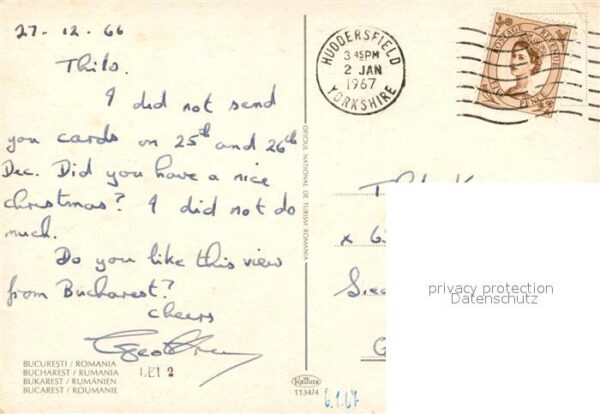 27-12-66
Thilo.
I did not send
you cards on 25th and 26th
Dec. Did you have a nice
christmas? I did not do
much.
Do you like this view
from Bucharest?
cheers
BUCUREȘTI / ROMANIA
BUCHAREST / RUMANIA
BUKAREST / RUMÄNIEN
BUCAREST / ROUMANIE
LEI 2
OFICIUL NATIONAL DE TURISM ROMANIA
1134/4
HUDDERSFIELD
3 45PM
2 JAN
1967
YORKSHIRE
POSTAGE REVENUE
x 6
privacy protection
Datenschutz
6.1.67